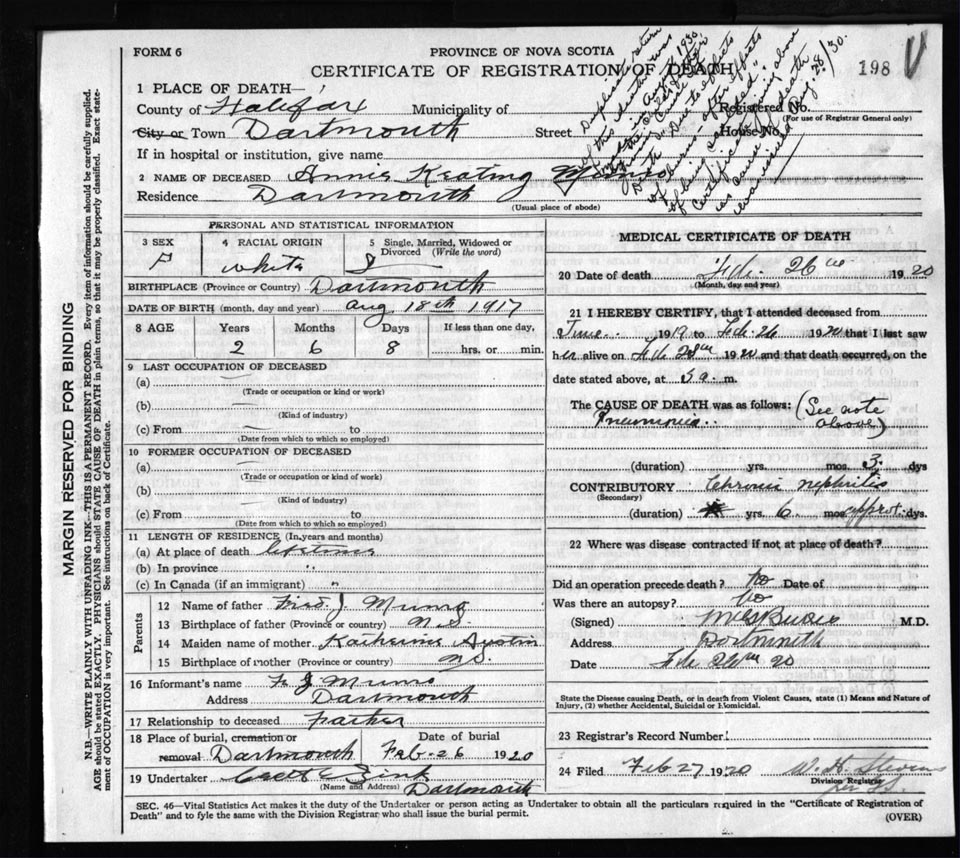 FORM 6
PROVINCE OF NOVA SCOTIA
CERTIFICATE OF REGISTRATION OF DEATH
198
1 PLACE OF DEATH—
County of Halifax Municipality of
City or Town Dartmouth Street House No.
Registered No.
(For use of Registrar General only)
If in hospital or institution, give name
2 NAME OF DECEASED Annie Keating Munro
Residence Dartmouth
(Usual place of abode)
PERSONAL AND STATISTICAL INFORMATION
3 SEX F
4 RACIAL ORIGIN white
5 Single, Married, Widowed or Divorced (Write the word) S
BIRTHPLACE (Province or Country) Dartmouth
DATE OF BIRTH (month, day and year) Aug 18th 1917
8 AGE Years Months Days If less than one day,
2 6 8 hrs. or min.
9 LAST OCCUPATION OF DECEASED
(a)
(Trade or occupation or kind or work)
(b)
(Kind of industry)
(c) From to
(Date from which to which so employed)
10 FORMER OCCUPATION OF DECEASED
(a)
(Trade or occupation or kind of work)
(b)
(Kind of industry)
(c) From to
(Date from which to which so employed)
11 LENGTH OF RESIDENCE (In years and months)
(a) At place of death lifetime
(b) In province "
(c) In Canada (if an immigrant) "
Parents
12 Name of father Fred. J. Munro
13 Birthplace of father (Province or country) N.S.
14 Maiden name of mother Katherine Austin
15 Birthplace of mother (Province or country) N.S.
16 Informant's name F J Munro
Address Dartmouth
17 Relationship to deceased Father
18 Place of burial, cremation or removal Dartmouth
Date of burial Feb-26 1920
19 Undertaker Zink
(Name and Address) Dartmouth
MEDICAL CERTIFICATE OF DEATH
20 Date of death Feb. 26th 1920
(Month, day and year)
21 I HEREBY CERTIFY, that I attended deceased from
June 1919 to Feb 26 1920 that I last saw
her alive on Feb 1920 and that death occurred, on the
date stated above, at 5 a. m.
The CAUSE OF DEATH was as follows: (See note above)
Pneumonia
(duration) yrs. mos. 3 dys
CONTRIBUTORY Chronic nephritis
(Secondary)
(duration) yrs. 6 mos approx. dys.
22 Where was disease contracted if not at place of death?
Did an operation precede death? No Date of
Was there an autopsy? No
(Signed) M.D.
Address Dartmouth
Date Feb 26th 20
State the Disease causing Death, or in death from Violent Causes, state (1) Means and Nature of Injury, (2) whether Accidental, Suicidal or Homicidal.
23 Registrar's Record Number
24 Filed Feb 27 1920 W. H. Stevens
Division Registrar
SEC. 46—Vital Statistics Act makes it the duty of the Undertaker or person acting as Undertaker to obtain all the particulars required in the "Certificate of Registration of
Death" and to fyle the same with the Division Registrar who shall issue the burial permit.
(OVER)
MARGIN RESERVED FOR BINDING
N.B.—WRITE PLAINLY WITH UNFADING INK—THIS IS A PERMANENT RECORD. Every item of information should be carefully supplied.
AGE should be stated EXACTLY. PHYSICIANS should STATE CAUSE OF DEATH in plain terms, so that it may be properly classified. Exact statement of OCCUPATION is very important. See instructions on back of Certificate.